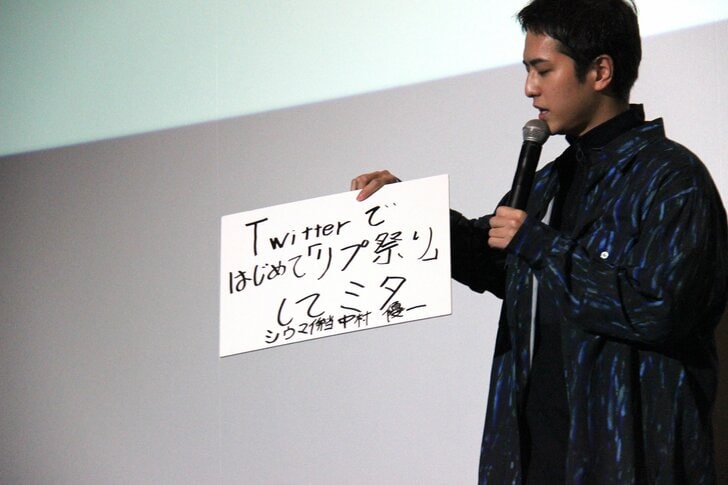 Twitterで
はじめて「リプ祭り」
してミタ
シウマイ弁当 中村 優一